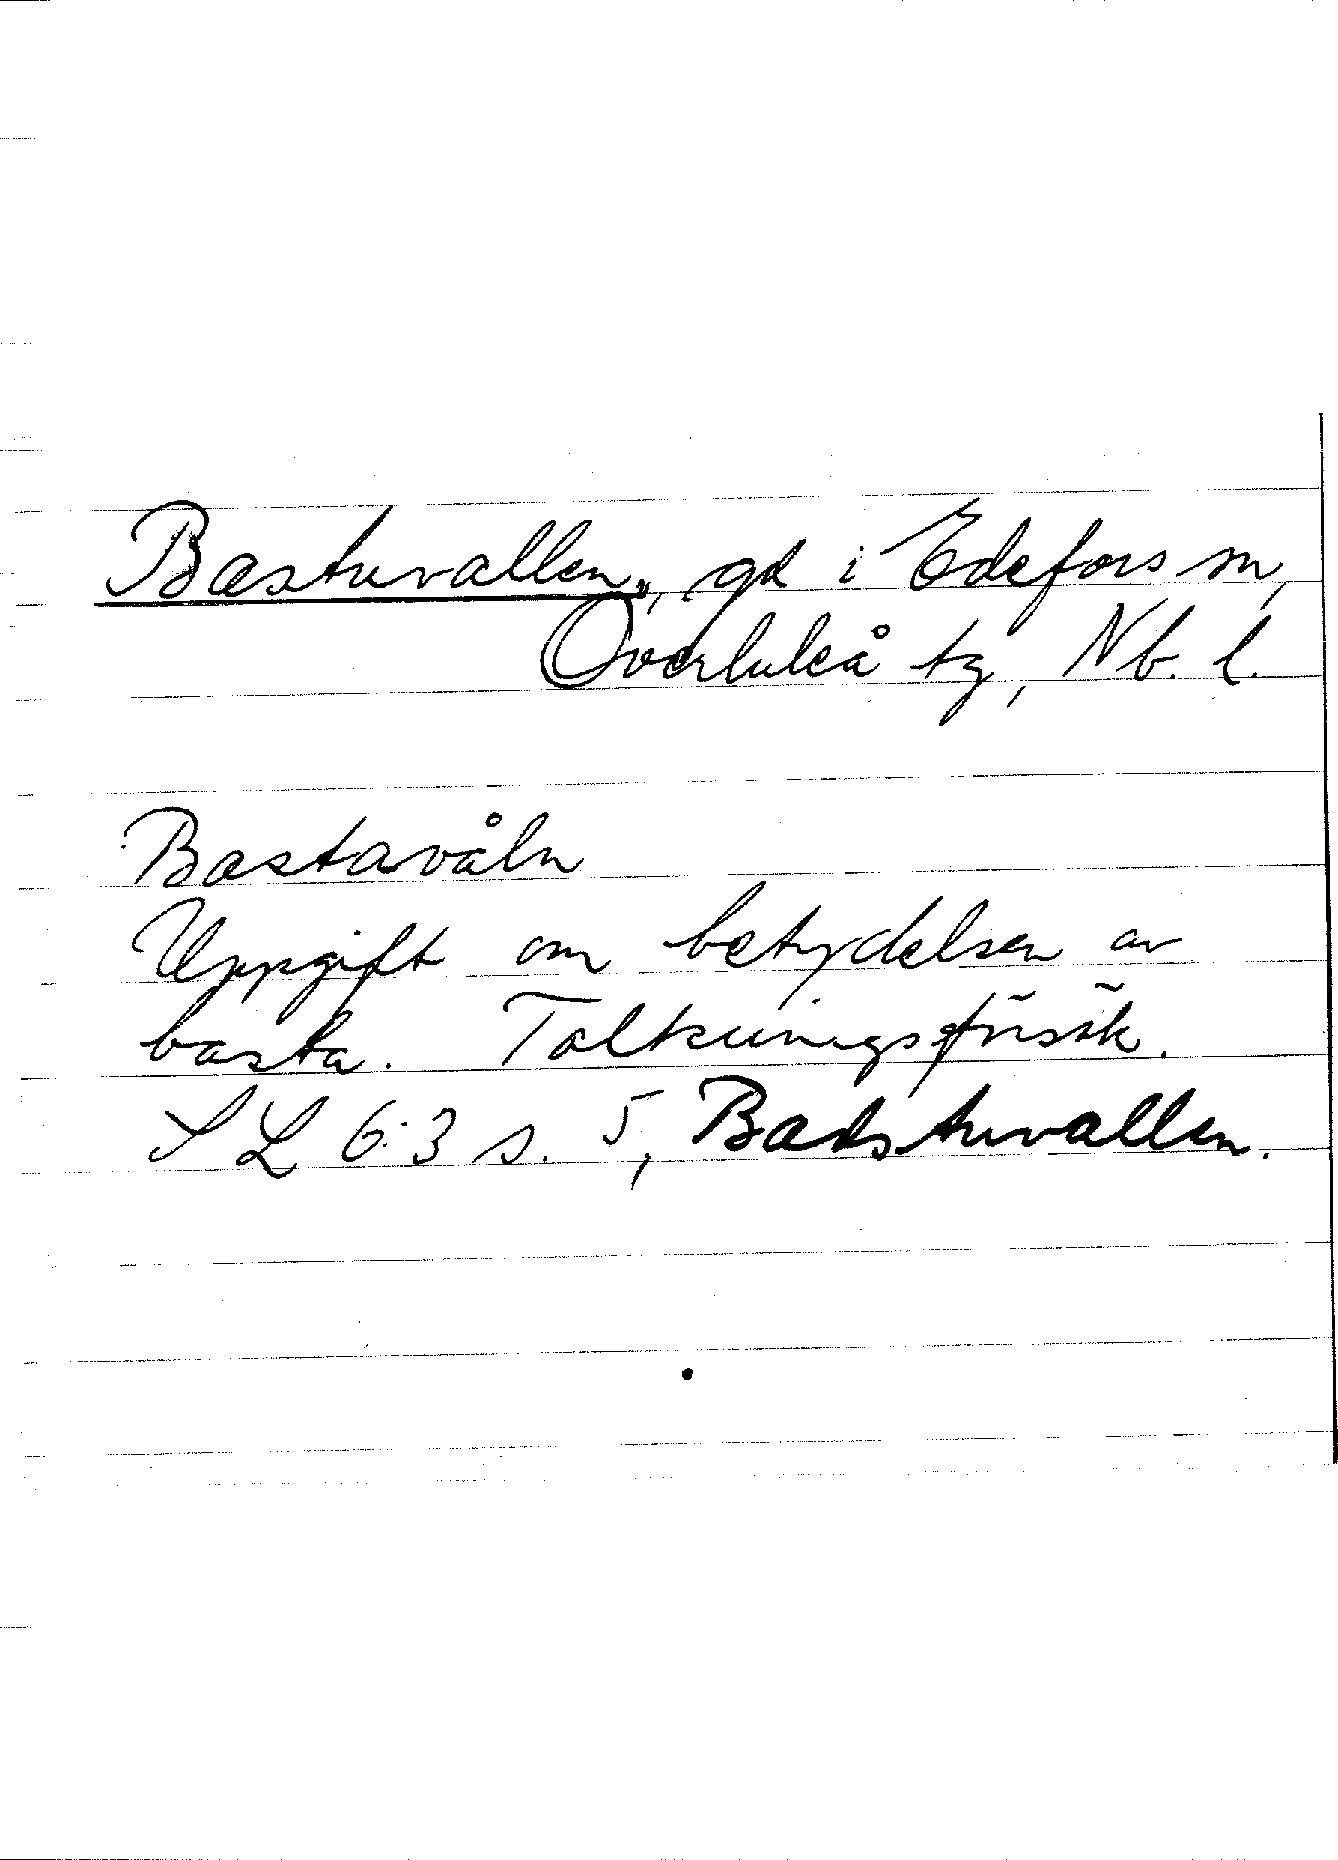 Bastuvallen, gd i Edefors sn,
Överluleå tg, Nb. l.
Bastavåln
Uppgift om betydelsen av
basta. Tolkningsförsök.
SL 6:3 s. 5, Badstuvallen.